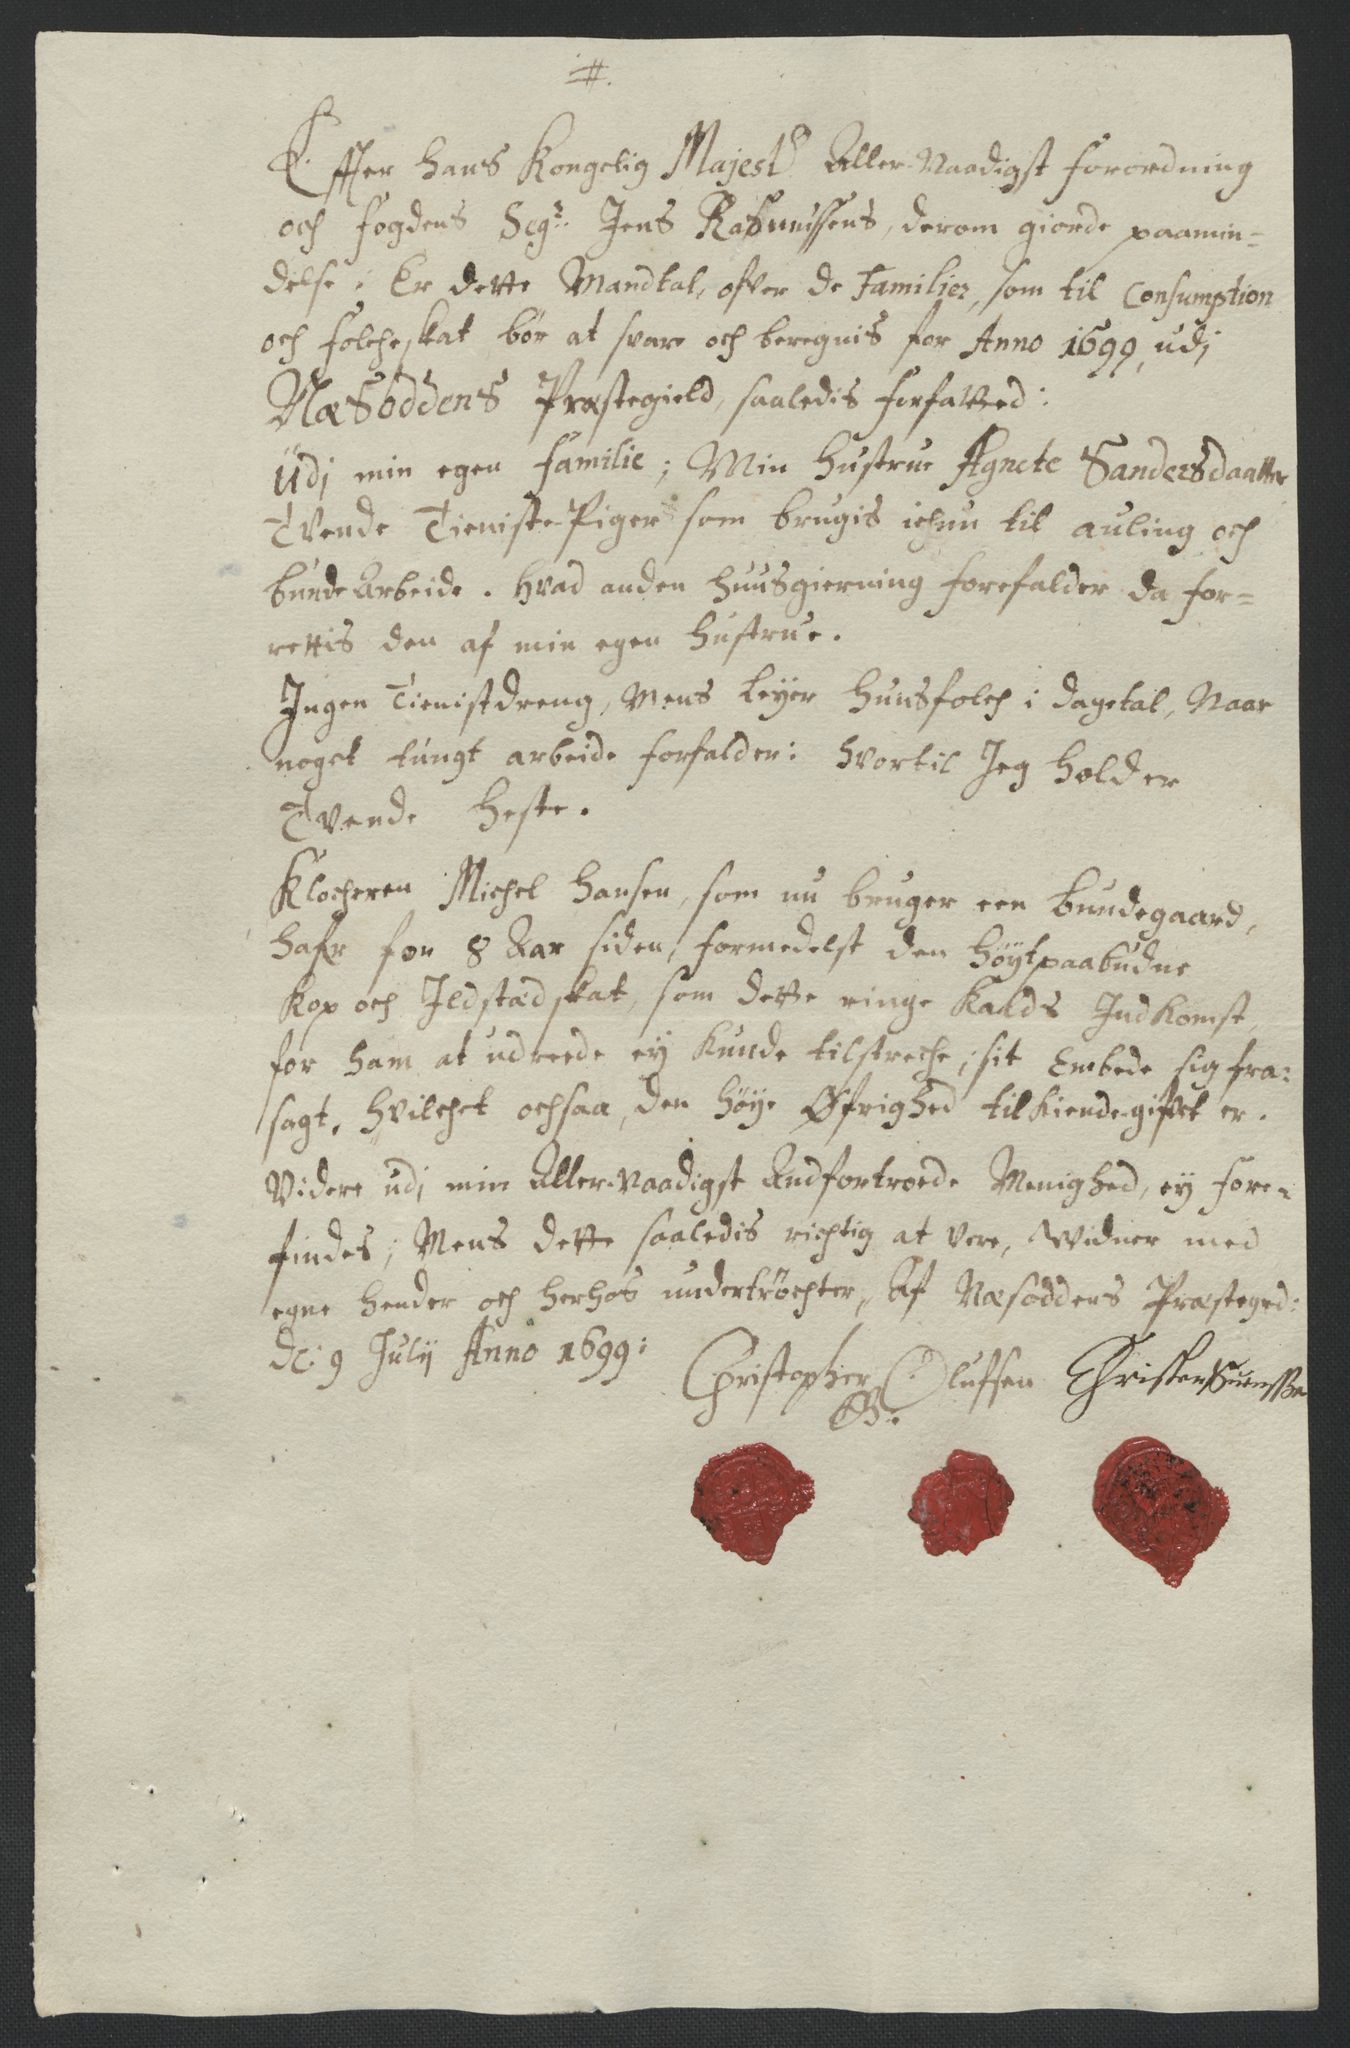 #.
Effter hans Kongelig Majestꝭ Aller-Naadigst forordning
och fogdens Sgr: Jens Rasmussens, derom giorde paamin=
delse: Er dette Mandtal, ofver de Familier, som til Consumption
och folcheskat bør at svare och beregnis for Anno 1699, udj
Næsoddens Præstegield, saaledis forfatted:
Udj min egen familie; Min hustrue Agnete Sandersdaatter
Tvende Tieniste-Piger som brugis ichun til auling och
bunde Arbeide. hvad anden huusgierning forefalder da for=
rettis den af min egen hustrue.
Ingen Tienistdreng, Mens leyer huusfolch i dagetal, Naar
noget tungt arbeide forfalder: hvortil Jeg holder
Tvende heste.
Klocheren Michel Hansen, som nu bruger een bundegaard,
hafr for 8 Aar siden, formedelst den høytpaabudne
Kop och Ildstædskat, som dette ringe Kalds Indkomst,
for ham at udreede ey kunde tilstreche; sit Embede sig fra=
sagt, hvilchet ochsaa, den høye Øfrighed tilkiende-gifvet er.
Videre udj min Aller-naadigst Andfortroede Menighed, ey fore=
findes; Mens dette saaledis richtig at vere, Widner med
egne hender och herhos undertrøchter, Af Næsoddens Præstegrd:
d: 9 Julij Anno 1699:
Christopher Oluffsen Christen Suenssen